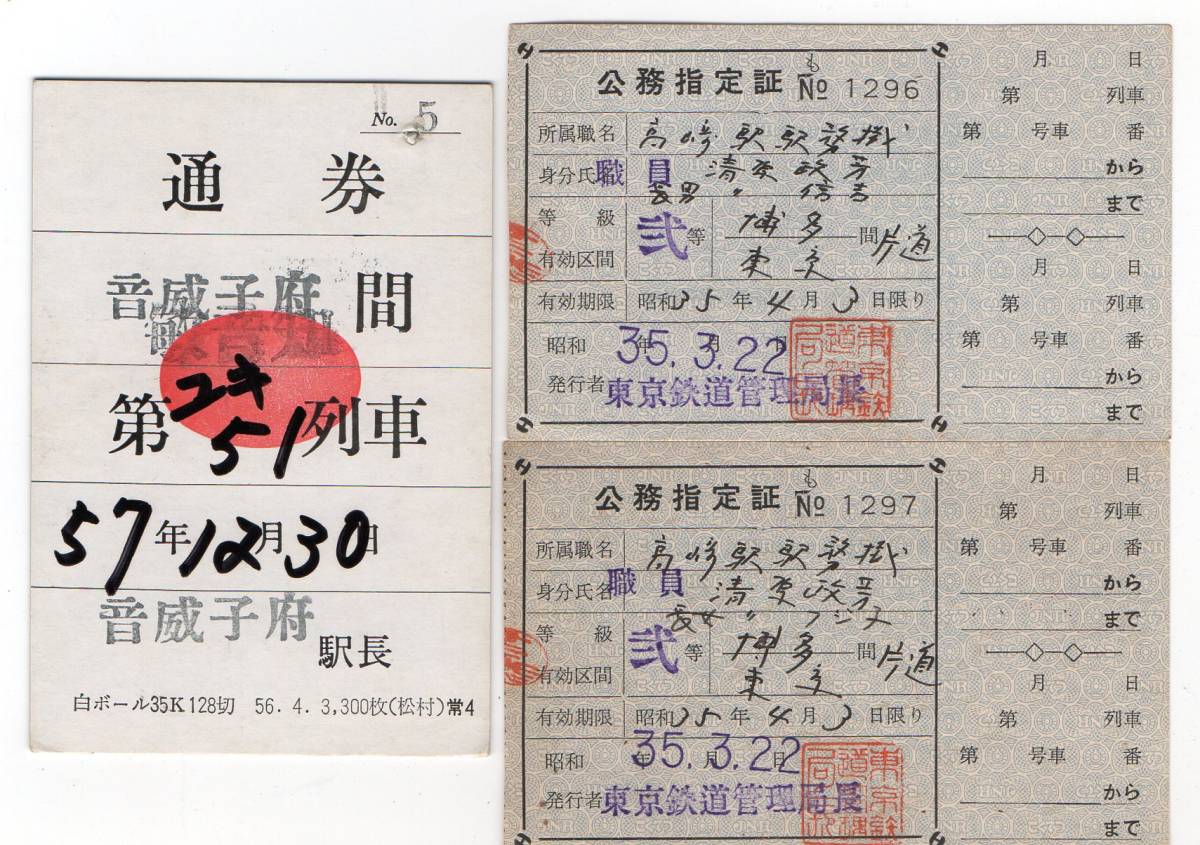 No. 5
通券
音威子府 間
第 ユキ 51 列車
57年12月30日
音威子府 駅長
白ボール35K128切 56.4.3,300枚(松村)常4
公務指定証 も No 1296
所属職名 高崎駅駅務掛
身分氏名 職員 清 政芳
長男 〃 信吉
等級 弐等
有効区間 博多 東京 間 片道
有効期限 昭和35年4月3日限り
昭和 35年3月22日
発行者 東京鉄道管理局長
月 日
第 列車
第 号車 番
から
まで
月 日
第 列車
第 号車 番
から
まで
公務指定証 も No 1297
所属職名 高崎駅駅務掛
身分氏名 職員 清 政芳
長女 〃 フジ子
等級 弐等
有効区間 博多 東京 間 片道
有効期限 昭和35年4月3日限り
昭和 35年3月22日
発行者 東京鉄道管理局長
月 日
第 列車
第 号車 番
から
まで
月 日
第 列車
第 号車 番
から
まで